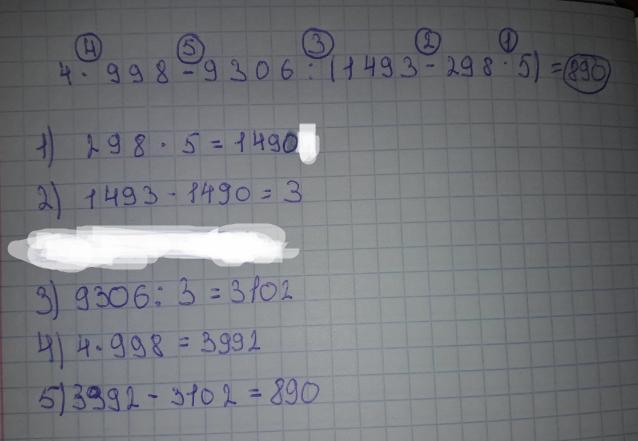 4 5 3 2 1
4 · 998 - 9306 : (1493 - 298 · 5) = 890
1) 298 · 5 = 1490
2) 1493 - 1490 = 3
3) 9306 : 3 = 3102
4) 4 · 998 = 3992
5) 3992 - 3102 = 890